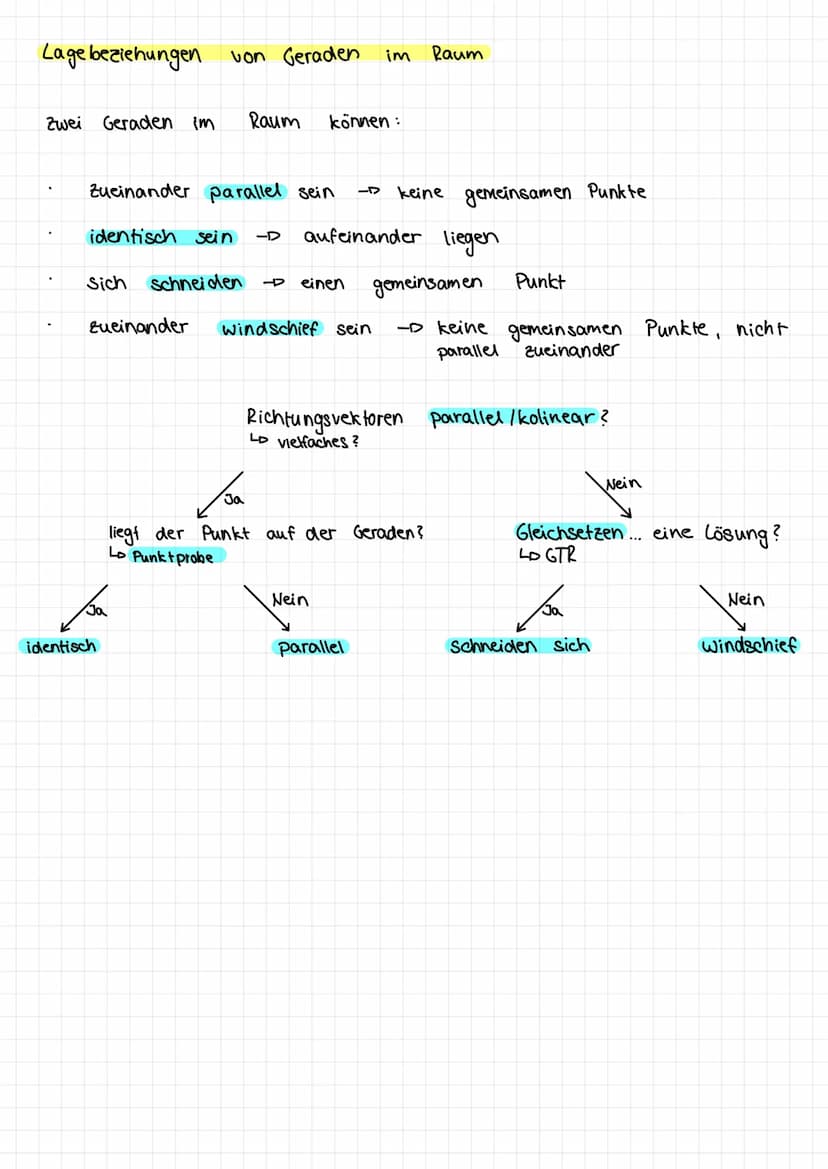 Lagebeziehungen von Geraden im Raum
Zwei Geraden im Raum können:
· zueinander parallel sein → keine gemeinsamen Punkte
· identisch sein → aufeinander liegen
· sich schneiden → einen gemeinsamen Punkt
· zueinander windschief sein → keine gemeinsamen Punkte, nicht
parallel zueinander
Richtungsvektoren parallel/kolinear?
↳ vielfaches?
Ja
Nein
liegt der Punkt auf der Geraden?
↳ Punktprobe
Gleichsetzen... eine Lösung?
↳ GTR
Ja
Nein
Ja
Nein
identisch
parallel
schneiden sich
windschief